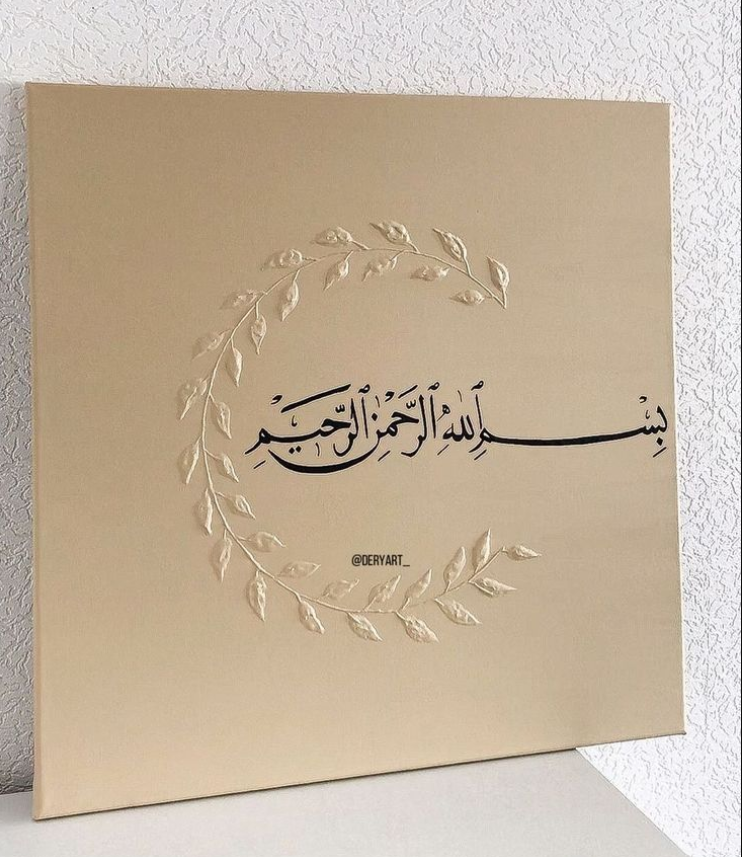 بِسْمِ ٱللهِ ٱلرَّحْمٰنِ ٱلرَّحِيمِ
@DERYART_